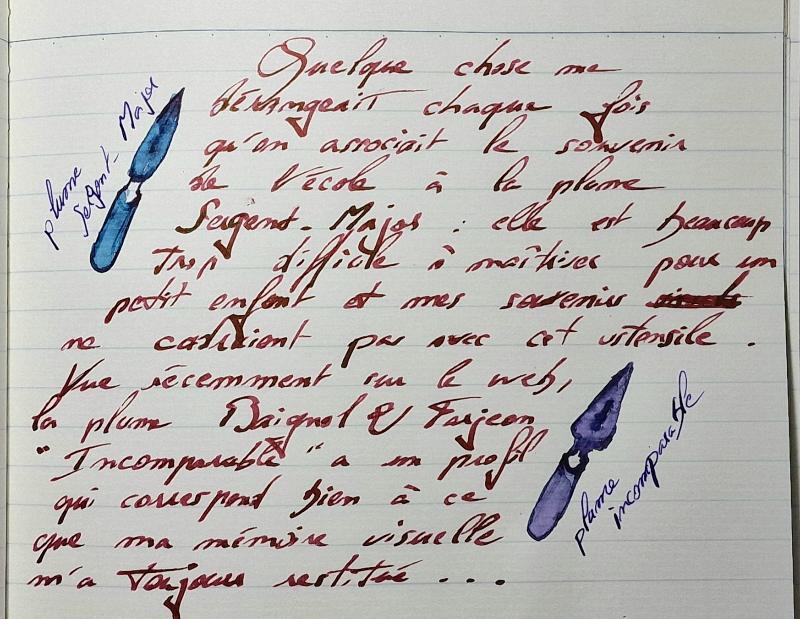 Quelque chose me
dérangeait chaque fois
qu'on associait le souvenir
de l'école à la plume
Sergent-Major : elle est beaucoup
trop difficile à maîtriser pour un
petit enfant et mes souvenirs
ne cadraient pas avec cet ustensile.
Vue récemment sur le web,
la plume Baignol & Farjeon
"Incomparable" a un profil
qui correspond bien à ce
que ma mémoire visuelle
m'a toujours restitué ....
plume
Sergent-Major
plume
incomparable